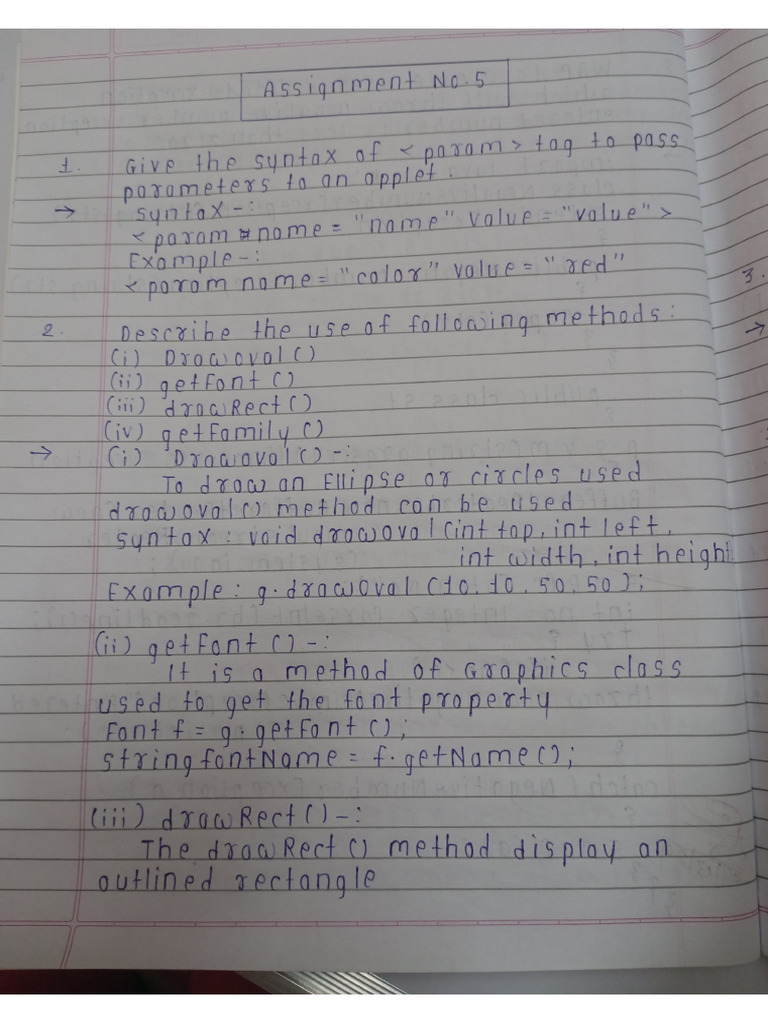 Assignment No. 5
1. Give the syntax of <param> tag to pass
parameters to an applet.
→ syntax -:
<param name = "name" value = "value">
Example -:
<param name = "color" value = "red"
3.
2. Describe the use of following methods:
(i) Drawoval ()
(ii) getFont ()
(iii) drawRect ()
(iv) getFamily ()
→ (i) Drawoval () -:
To draw an Ellipse or circles used
drawoval () method can be used
syntax : void drawoval (int top, int left,
int width, int heigh
Example : g.drawOval (10, 10, 50, 50);
(ii) getFont () -:
It is a method of Graphics class
used to get the font property
Font f = g.getFont ();
string fontName = f.getName ();
(iii) drawRect () -:
The drawRect () method display an
outlined rectangle